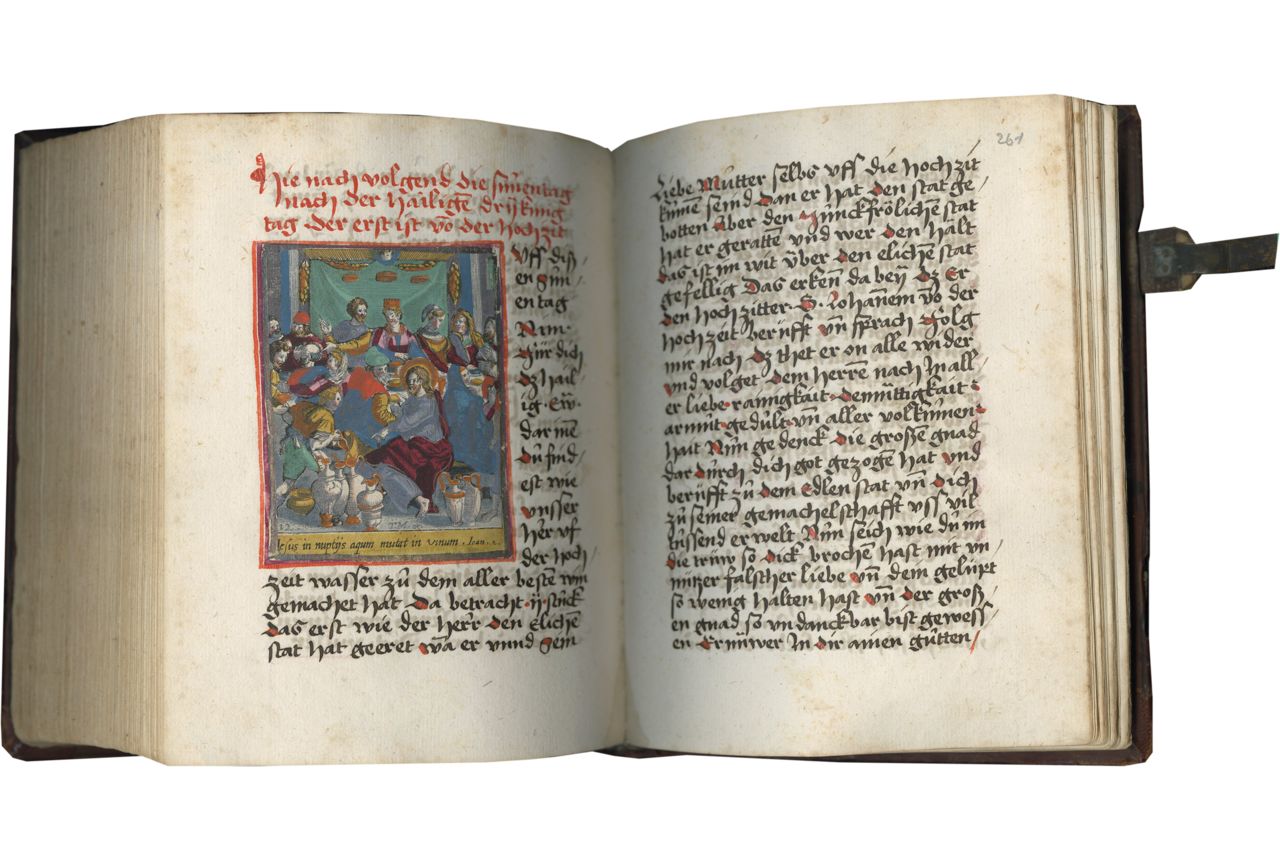 Hie nach volgend die sun̄entag
nach der hailigē drÿkünig
tag der erst ist vō der hochzit
Vff diß
en sun̄
en tag
Nim
für dich
dz hail
ig Ew̄
dar in̄e
du find
est wie
vnsser
her vf
der hoch
Iesus in nuptijs aqum mutat in vinum. Ioan. 2.
zeit wasser zů dem aller bestē win
gemachet hat Da betracht ·ij· stuck
Das erst wie der herr den elichē
stat hat geeret wā er vnnd sein
261
liebe Mutter selbs vff die hochzit
kumē seind Dan er hat den stat ge
botten Über den Junckfrölichē stat
hat er geratten vnd wer den halt
das ist im wit über den elichē stat
gefellig Das erken̄ da beÿ Dz Er
den hochzitter · S · Iohan̄em vō der
hochzeit berüfft vn̄ sprach folg
mir nach Dz thet er on alle wider
vnd volget dem herrē nach In all
er liebe rainigkait · demüttigkait
armut gedult vn̄ aller volkumen
hait Nim gedenck die große gnad
dar durch dich got gezogē hat vnd
berüfft zů dem Edlen stat vn̄ dich
zů seiner gemachelschafft vss vil
tussend er welt Nun seich wie du im
die trüw so dick brochē hast mit vn
nutzer falscher liebe vn̄ dem gelüpt
so wenig halten hast vn̄ der groß
en gnad so vndanckbar bist gewess
en Ernüwer In dir ainen gütten